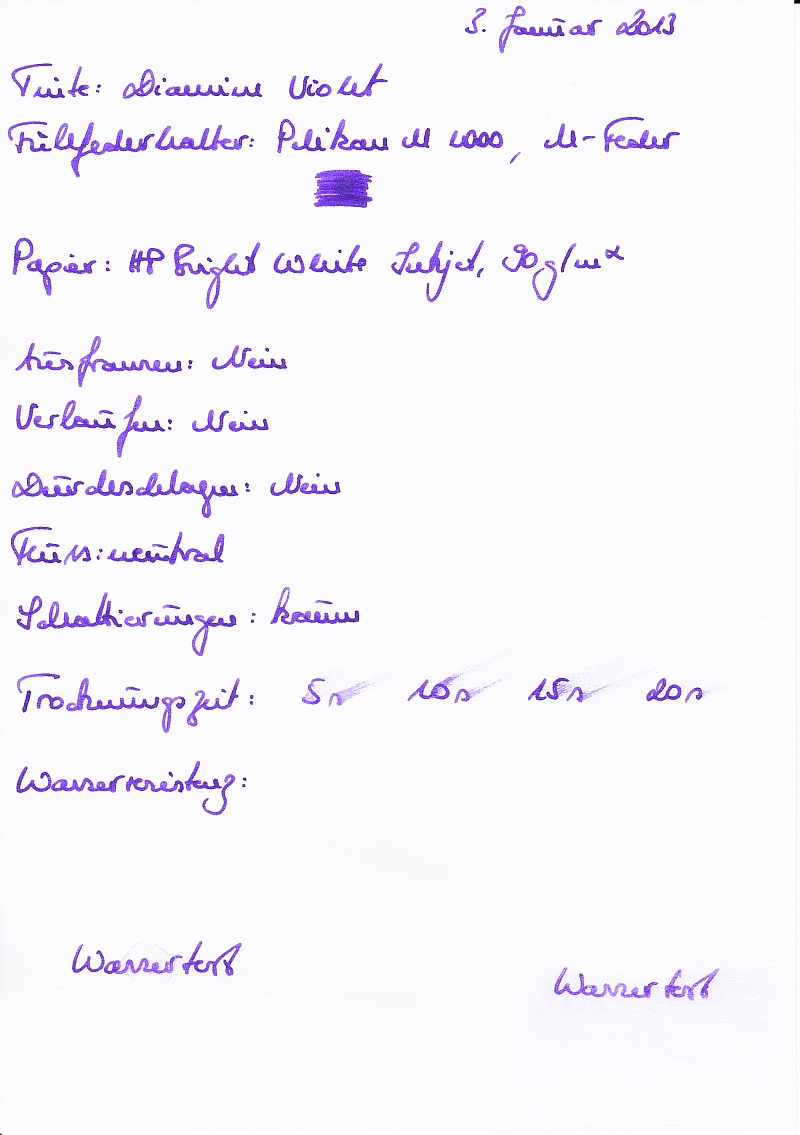 3. Januar 2013
Tinte: Diamine Violet
Füllfederhalter: Pelikan M 1000, M-Feder
Papier: HP Bright White Inkjet, 90 g/m²
Ausfransen: Nein
Verlaufen: Nein
Durchschlagen: Nein
Fluss: neutral
Schattierungen: kaum
Trocknungszeit: 5s 10s 15s 20s
Wasserresistenz:
Wassertest
Wassertest